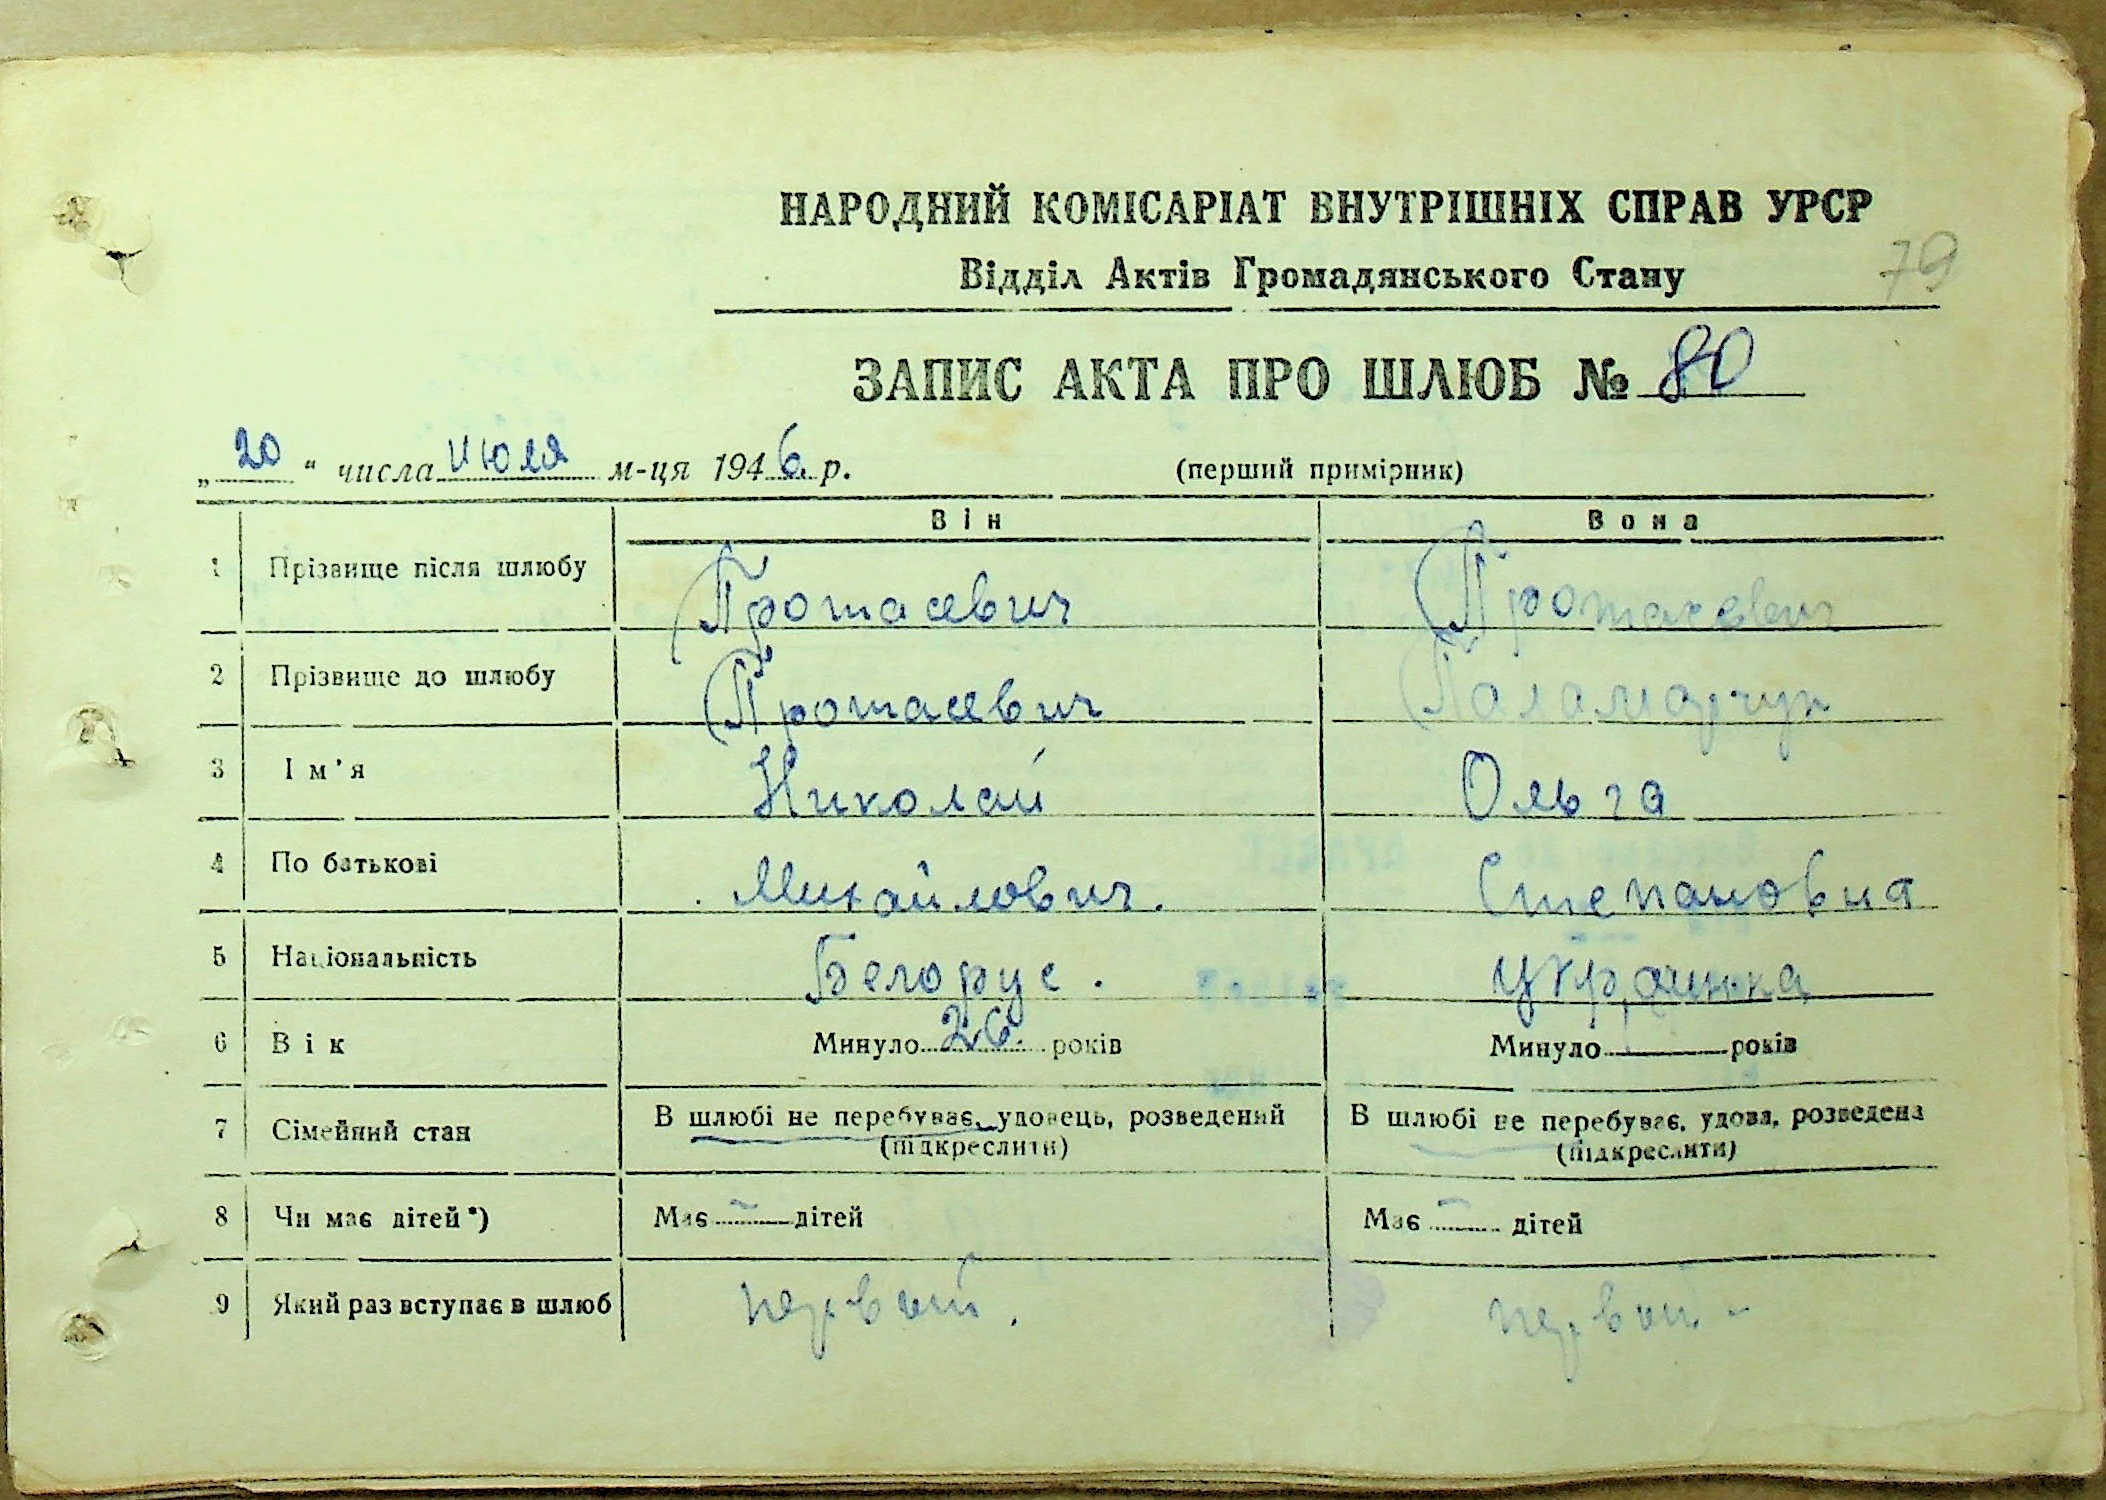 НАРОДНИЙ КОМІСАРІАТ ВНУТРІШНІХ СПРАВ УРСР
Відділ Актів Громадянського Стану
79
ЗАПИС АКТА ПРО ШЛЮБ № 80
„20“ числа июля м-ця 1946 р. (перший примірник)
Він Вона
1 Прізвище після шлюбу Протасевич Протасевич
2 Прізвище до шлюбу Протасевич Паламарчук
3 Ім'я Николай Ольга
4 По батькові Михайлович. Степановна
5 Національність Белорус. украинка
6 Вік Минуло 26. років Минуло років
7 Сімейний стан В шлюбі не перебуває, удовець, розведений В шлюбі не перебуває, удова, розведена
(підкреслити) (підкреслити)
8 Чи має дітей*) Має – дітей Має – дітей
9 Який раз вступає в шлюб первый. первый –